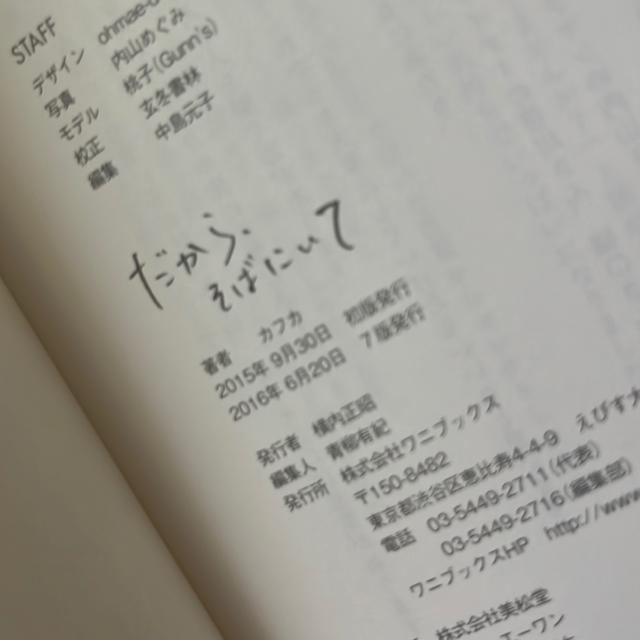 STAFF
デザイン
写真
モデル
校正
編集
内山めぐみ
悠子(Gunn's)
玄冬書林
中島元子
だから、
そばにいて
著者 カフカ
2015年 9月30日 初版発行
2016年 6月20日 7版発行
発行者 横内正昭
編集人 青柳有紀
発行所 株式会社ワニブックス
〒150-8482
東京都渋谷区恵比寿4-4-9 えびす大
電話 03-5449-2711(代表)
03-5449-2716(編集部)
ワニブックスHP http://www
株式会社美松堂